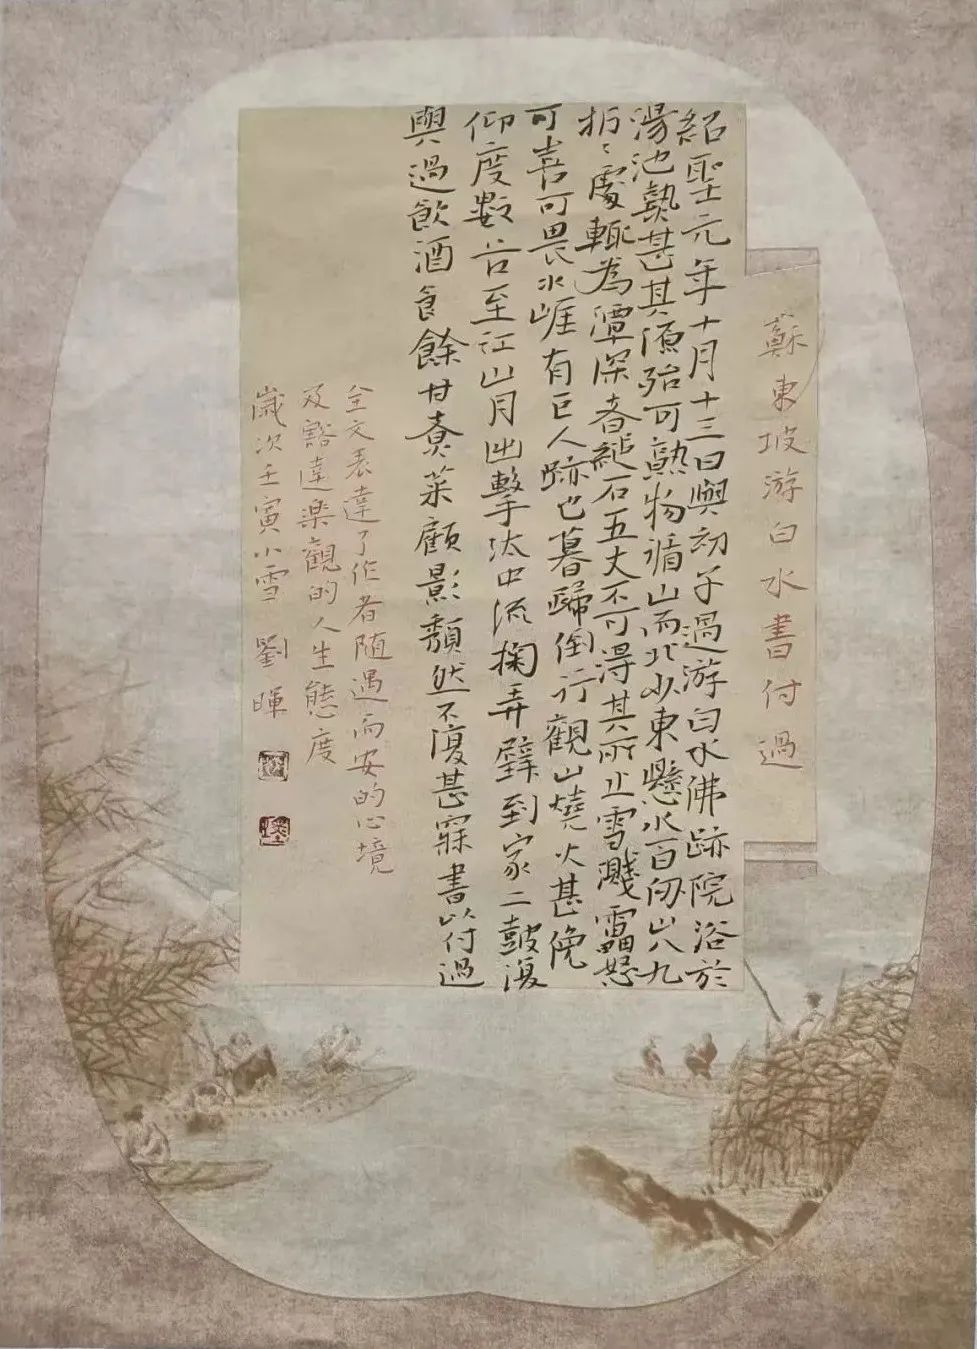 蘇東坡游白水書付過
紹聖元年十月十三日與幼子過游白水佛跡院浴於
湯池熱甚其源殆可熟物循山而北少東懸水百仞山八九
折〻處輒為潭深者縋石五丈不可得其所止雪濺雷怒
可喜可畏水崖有巨人跡也暮歸倒行觀山燒火甚俛
仰度數谷至江山月出擊汰中流掬弄璧到家二鼓復
與過飲酒食餘甘煑菜顧影頹然不復甚寐書以付過
全文表達了作者随遇而安的心境
及豁達樂觀的人生態度
歲次壬寅小雪 劉暉